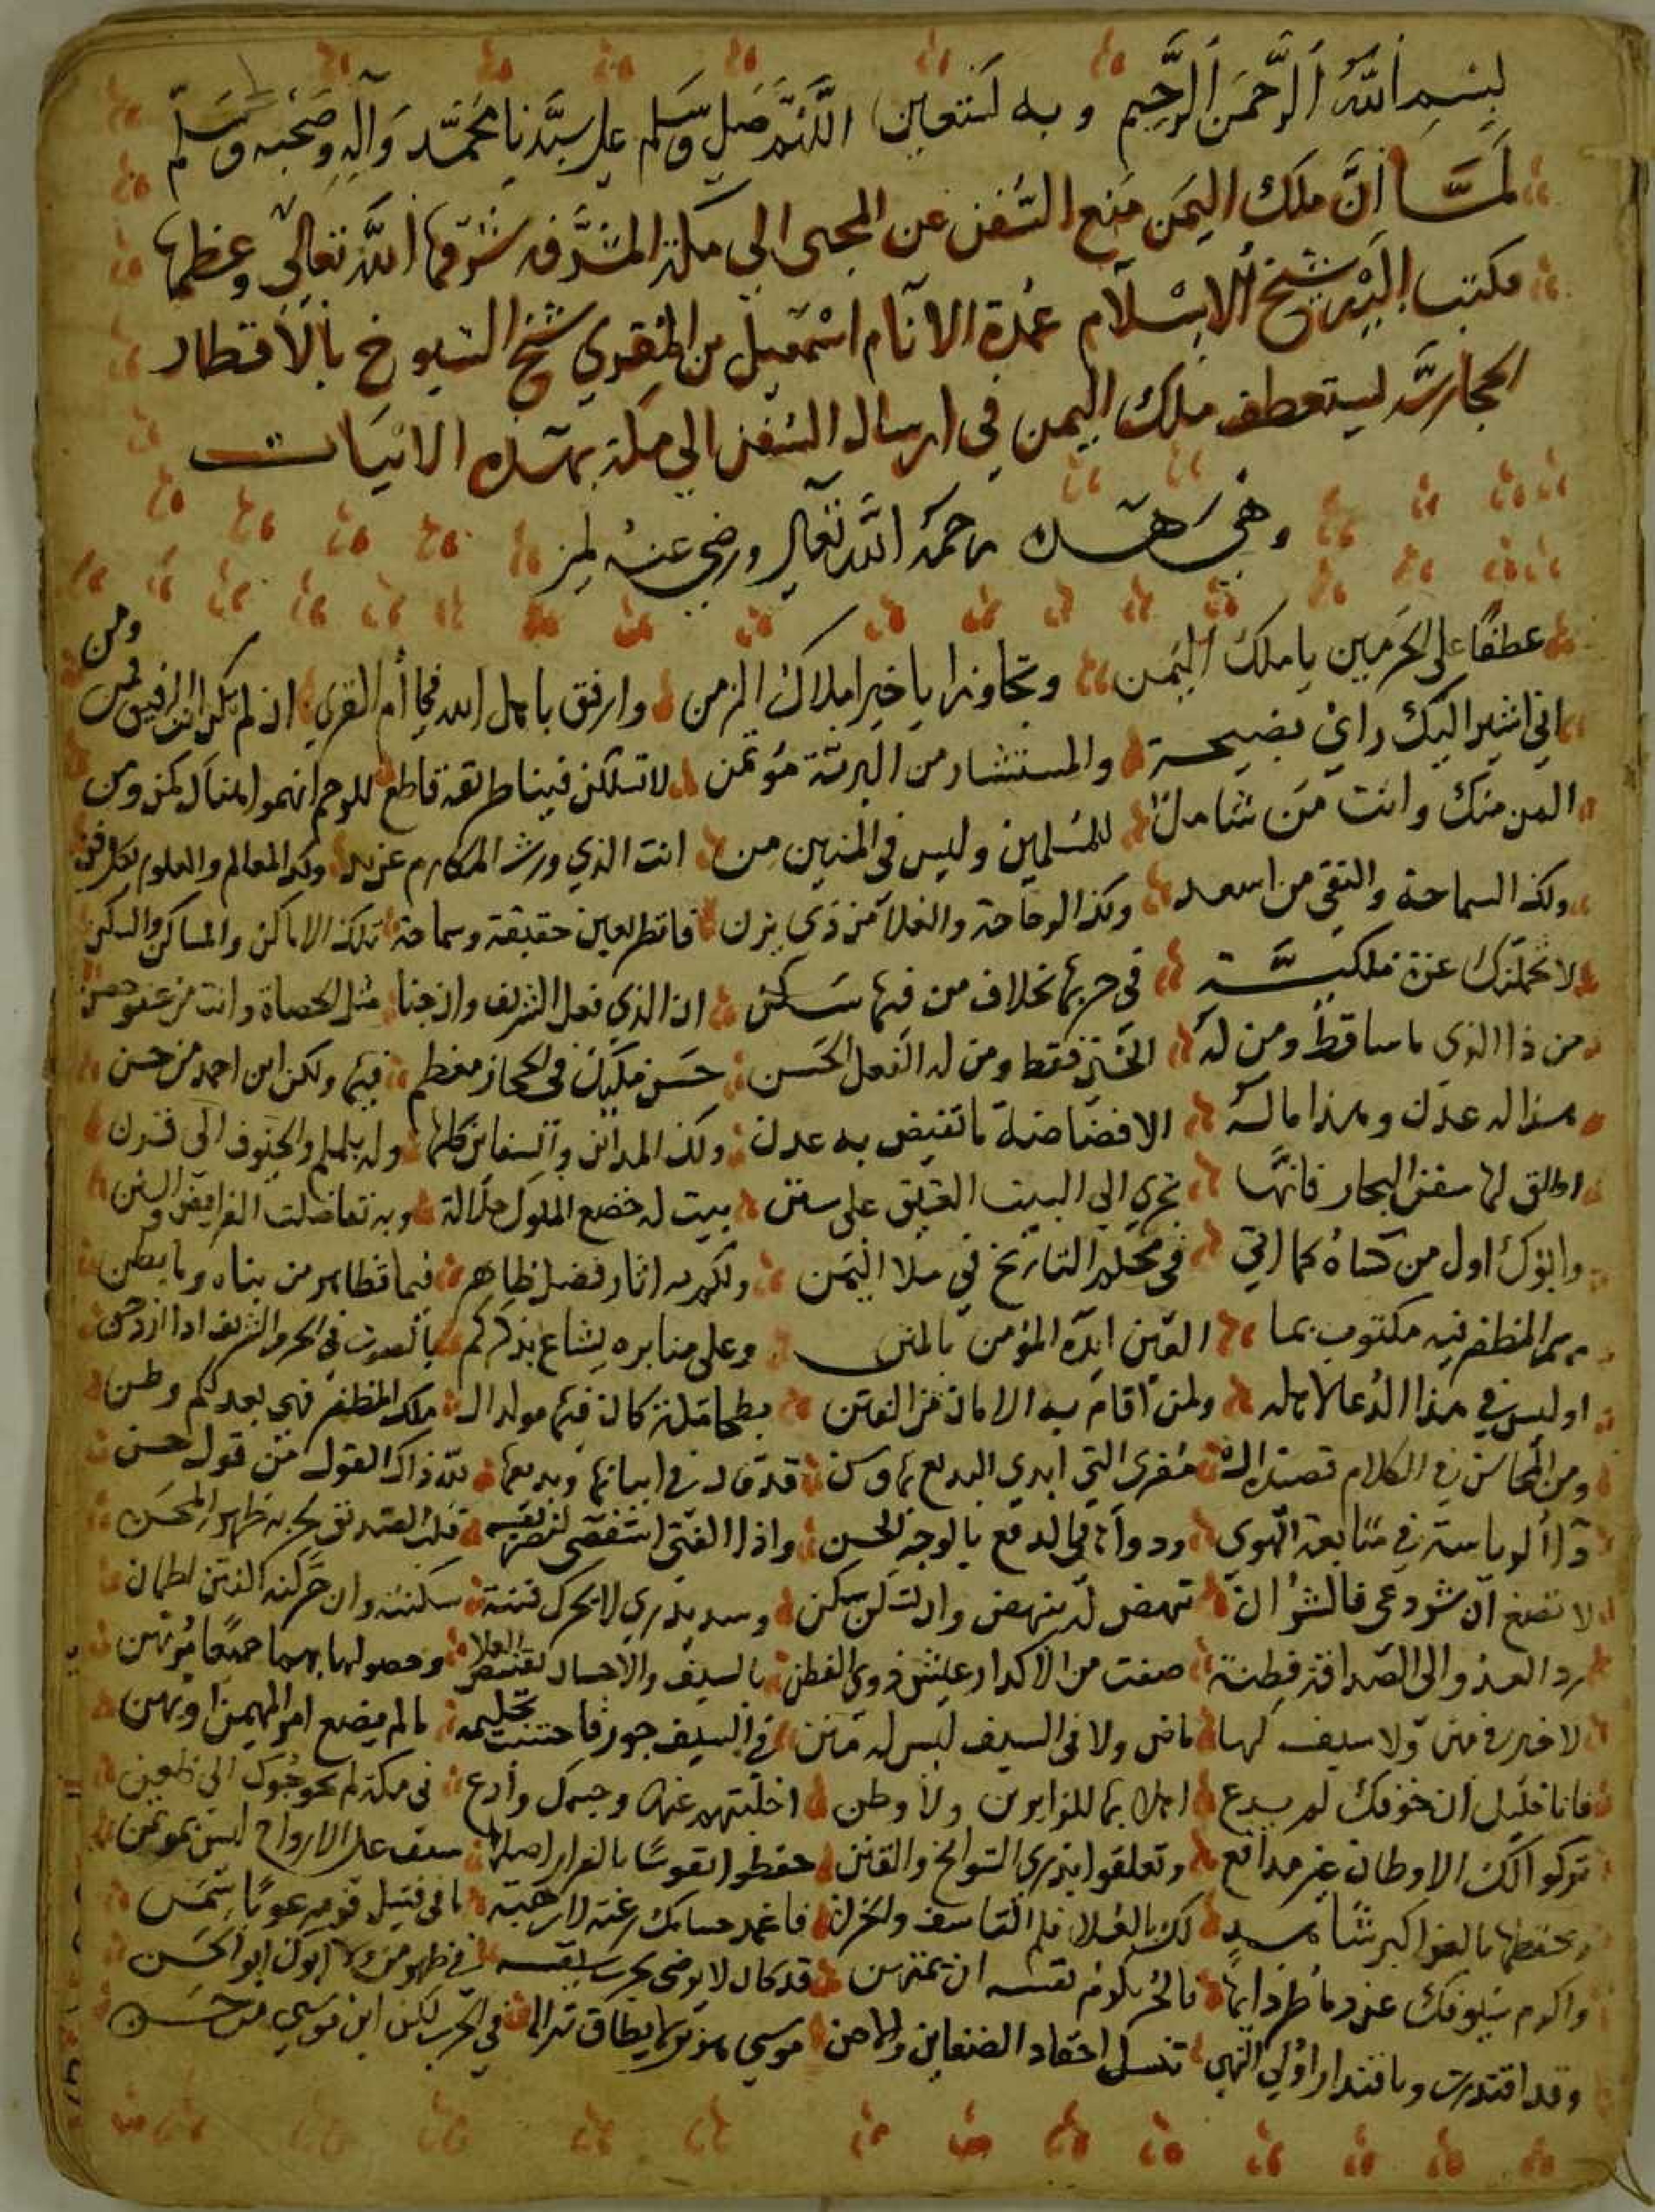 بِسْمِ اللَّهِ الرَّحْمَنِ الرَّحِيم وبه نستعين اللَّهُمَّ صَلِّ وَسَلِّم على سَيِّدِنَا مُحَمَّد وَآلِهِ وَصَحْبِه وَسَلَّم
لَمَّا أنَّ مَلَك اليَمَن مَنع السُّفن عن المجىء الى مكة المُشَرَّفه شَرَّفها اللَّه تعالى وعظمها
فكتب اليه شيخ الاسْلَام عُمدة الانَام اسْمَعِيل بن المقري شيخ الشيوخ بالأقطار
الحجازيَّه ليستعطف ملك اليمن في ارسال السُفن الى مكة بهَذه الابْيَات
وهي هذه رحمهُ اللَّه تعَالى ورضي عنهُ
عطفًا على الحَرَمين يا ملكَ اليَمن وتجاوزا يا خير املاك الزمن وارفق باهل الله في أم القرى ان لم تكن انت الرفيق بهم ومن
اني اشير اليك راي نصيحة والمستشار من البرية مُؤتمن لا تسلكن فينا طريقة قاطع للرحم
المن منك وانت مَن شامل للمُسلمين وليس في المنين من انت الذي ورث المكارم عن يد ولك المعالم والعلوم بكل فن
ولك السماحة والتقى من اسعد ولك الوجاحة والعلا من ذي يزن فانظر بعين حقيقة وسماحة تلك الاماكن والمساكن والسكن
لا تحملنك عزة ملكيَّة في حربها بخلاف من فيها سَكن ان الذي فعل الشريف وان جنا مثل الحصاة وانت من عفو حصن
من ذا الذي ما ساقط ومن لهُ الحُسنى فقط ومن له الفعل الحَسن حَسن مليك في الحجاز معظم فيهم ولكن ابن احمد من حسن
هذا له عدن وهذا ماله الا فضاضة ما تفيض به عدن ولك المداين والسفاين كلها وله يلملم والجنوف الى قرن
اطلق لها سفن البحار فانها تجري الى البيت العتيق على سنن بيت له خضع الملوك جلالة وبه تفاضلت الفرايض والسنن
وابوك اول من كساهُ كما اتى في محكم التاريخ في ملا اليَمن ولكم به اثار فضل ظاهر فيما تظاهر من بناه وما بطن
المظفر فيه مكتوب بما وعلى منابره يشاع بذكركم بالصوت في الحرم الشريف
اوليس في هذا الدعا لاهله ولمن اقام به الامان من الفتن بطحا مكة كان فيهم مولد الملك المظفر فهي بعدكم وطن
ومن المحاسن في الكلام قصيدة المقري التي ابدى البديع بها وسن قد قال في ابياتها وبديعها لله ذاك القول من قول حسن
ألوباسة في متابعة الهوى ودوآها في الدفع بالوجه الحسن واذا الفتى استقصى لنصرة نفسه قلب الصديق لحربه ظهر المجن
لا تصغ ان شر دعى فالشر ان تهض له ينهض وان تسكن سكن وسديد راي لا يحرك فتنة سكنت وان حركنه الفتن اطمان
رد العدو الى الصداقة فطنة صفت من الاكدار عيش ذوي الفطن بالسيف والاحسان تقتنص العلا وحصولها بهما جميعًا مرتهن
لا خير في مَن ولا سيف لها ماض ولا في السيف ليس له مَنن في السيف جور فاحتنب تحليمه ما لم يضع امر المهيمن او يهن
فانا خليل ان خوفك لم يدع اهلا بها للزايرين ولا وطن اخليتهم عنها وجيشك وادع في مكة لم يحوجوك الى ظعن
تركوا لك الاوطان غير مدافع وتعلقوا بذرى الشوامخ والقنن حفظوا نفوسًا بالفرار اصلها سيف على الارواح ليس بموتمن
وحفظها بالعفو اكبر شاهد لك بالعُلا فلم التاسف والحزن فاغمد حسامك رغبة لا رهبة ما في قتيل فر مرعوبًا سمن
واكرم سيوفك عن دما طردايها فالحر يكرم نفسه ان يمتهن قد كان لا يرضى بحرب سيفه في ظهر من ولا ابوك ابو الحسن
وقد اقتدرت وباقتدار اولي النهى تنسل احقاد الضغاين والاحن موسى هزبر لا يطاق نزاله في الحرب لكن ابن موسى من حَسن